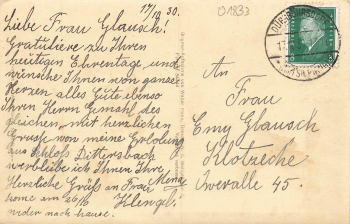 17/10 30.
01833
Liebe Frau Glausch!
Gratuliere zu Ihren
heutigen Ehrentage und
wünsche Ihnen von ganzen
Herzen alles Gute ebenso
Ihren Herrn Gemahl des
gleichen, mit herzlichen
Grüsse von meine Erholung
aus Schloß Dittersbach
verbleibe ich Ihnen Ihre
Herzliche Grüß an Frau
komme am 26/10 Klingel.
wieder nach hause.
An
Frau
Emy Glausch
Klotzsche
Queralle 45.